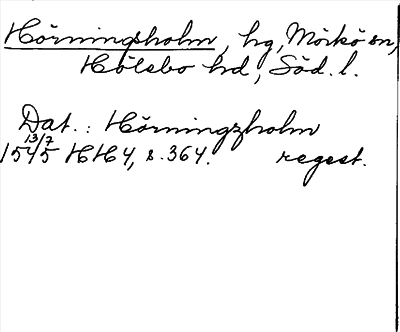 Hörningsholm, hg, Mörkö sn,
Hölebo hd, Söd. l.
Dat.: Hörningzholm
13/7
1545 HH 4, s. 364. regest.